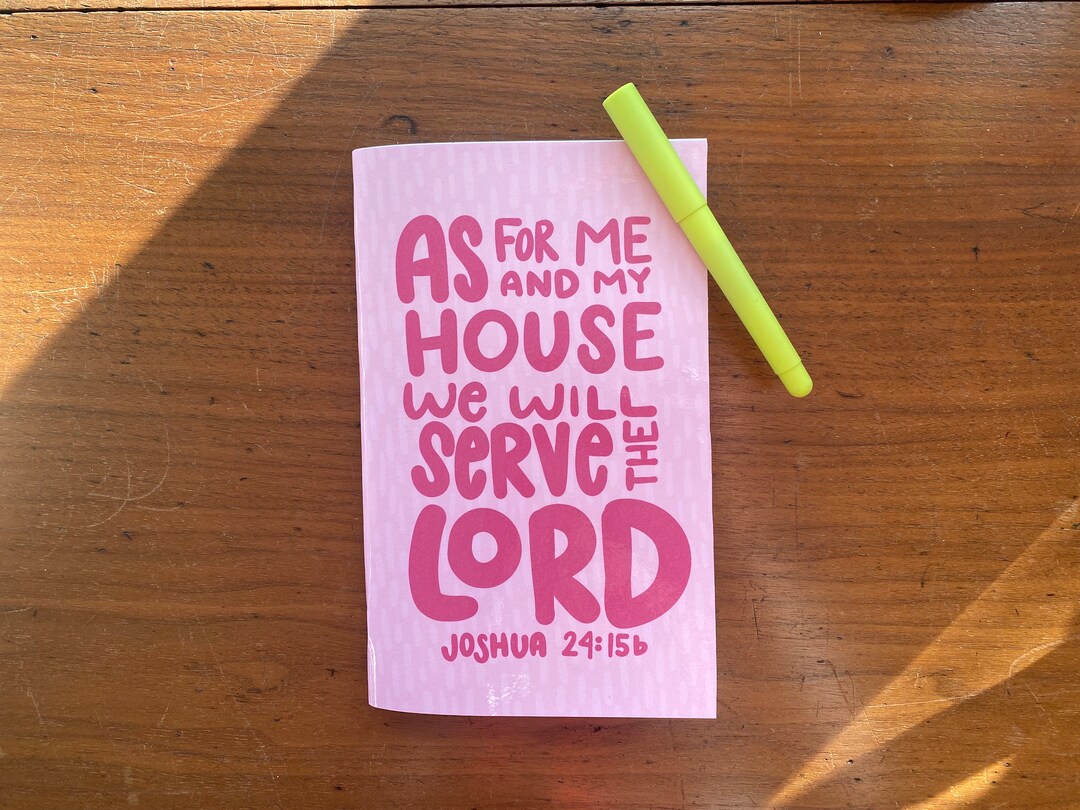 AS FOR ME
AND MY
HOUSE
We WILL
SeRVe THE
LoRD
JOSHUA 24:15b